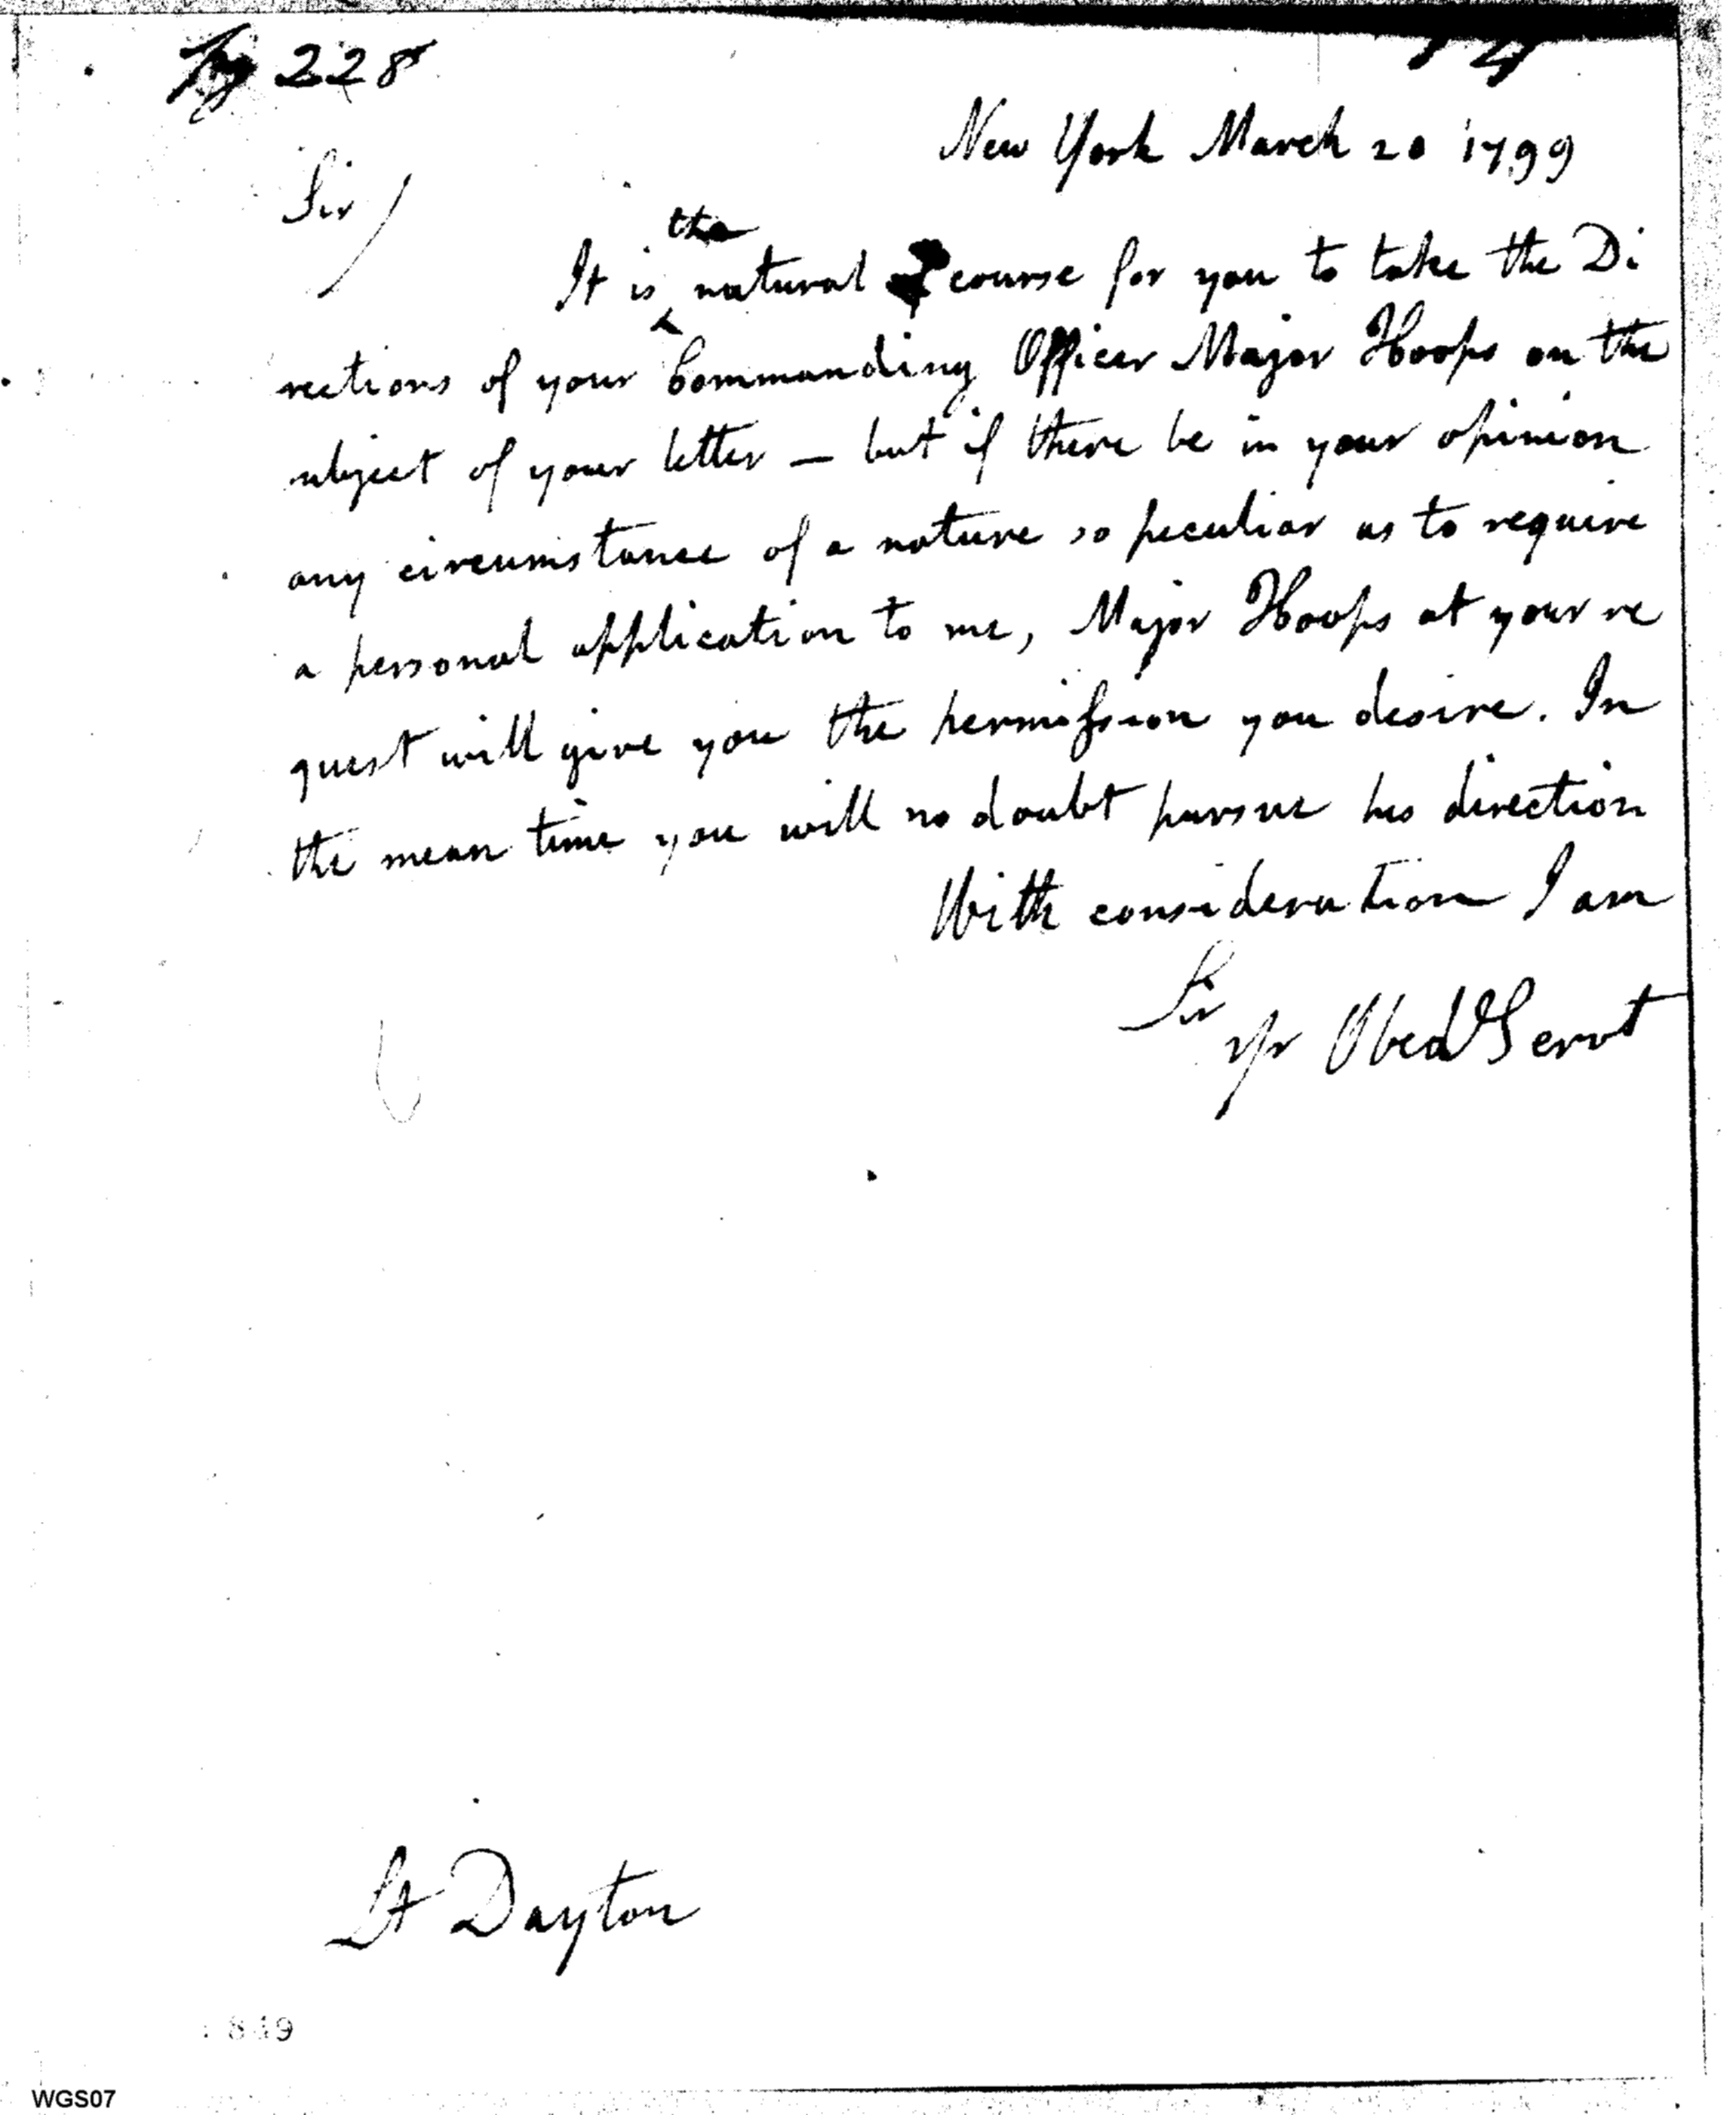 228
New York March 20 1799
Sir
the
It is natural course for you to take the Di
rections of your Commanding Officer Major Hoops on the
subject of your letter — but if there be in your opinion
any circumstance of a nature so peculiar as to require
a personal application to me, Major Hoops at your re
quest will give you the permission you desire. In
the mean time you will no doubt pursue his direction
With consideration I am
Sir
yr Obed Servt
Lt Dayton
849
WGS07